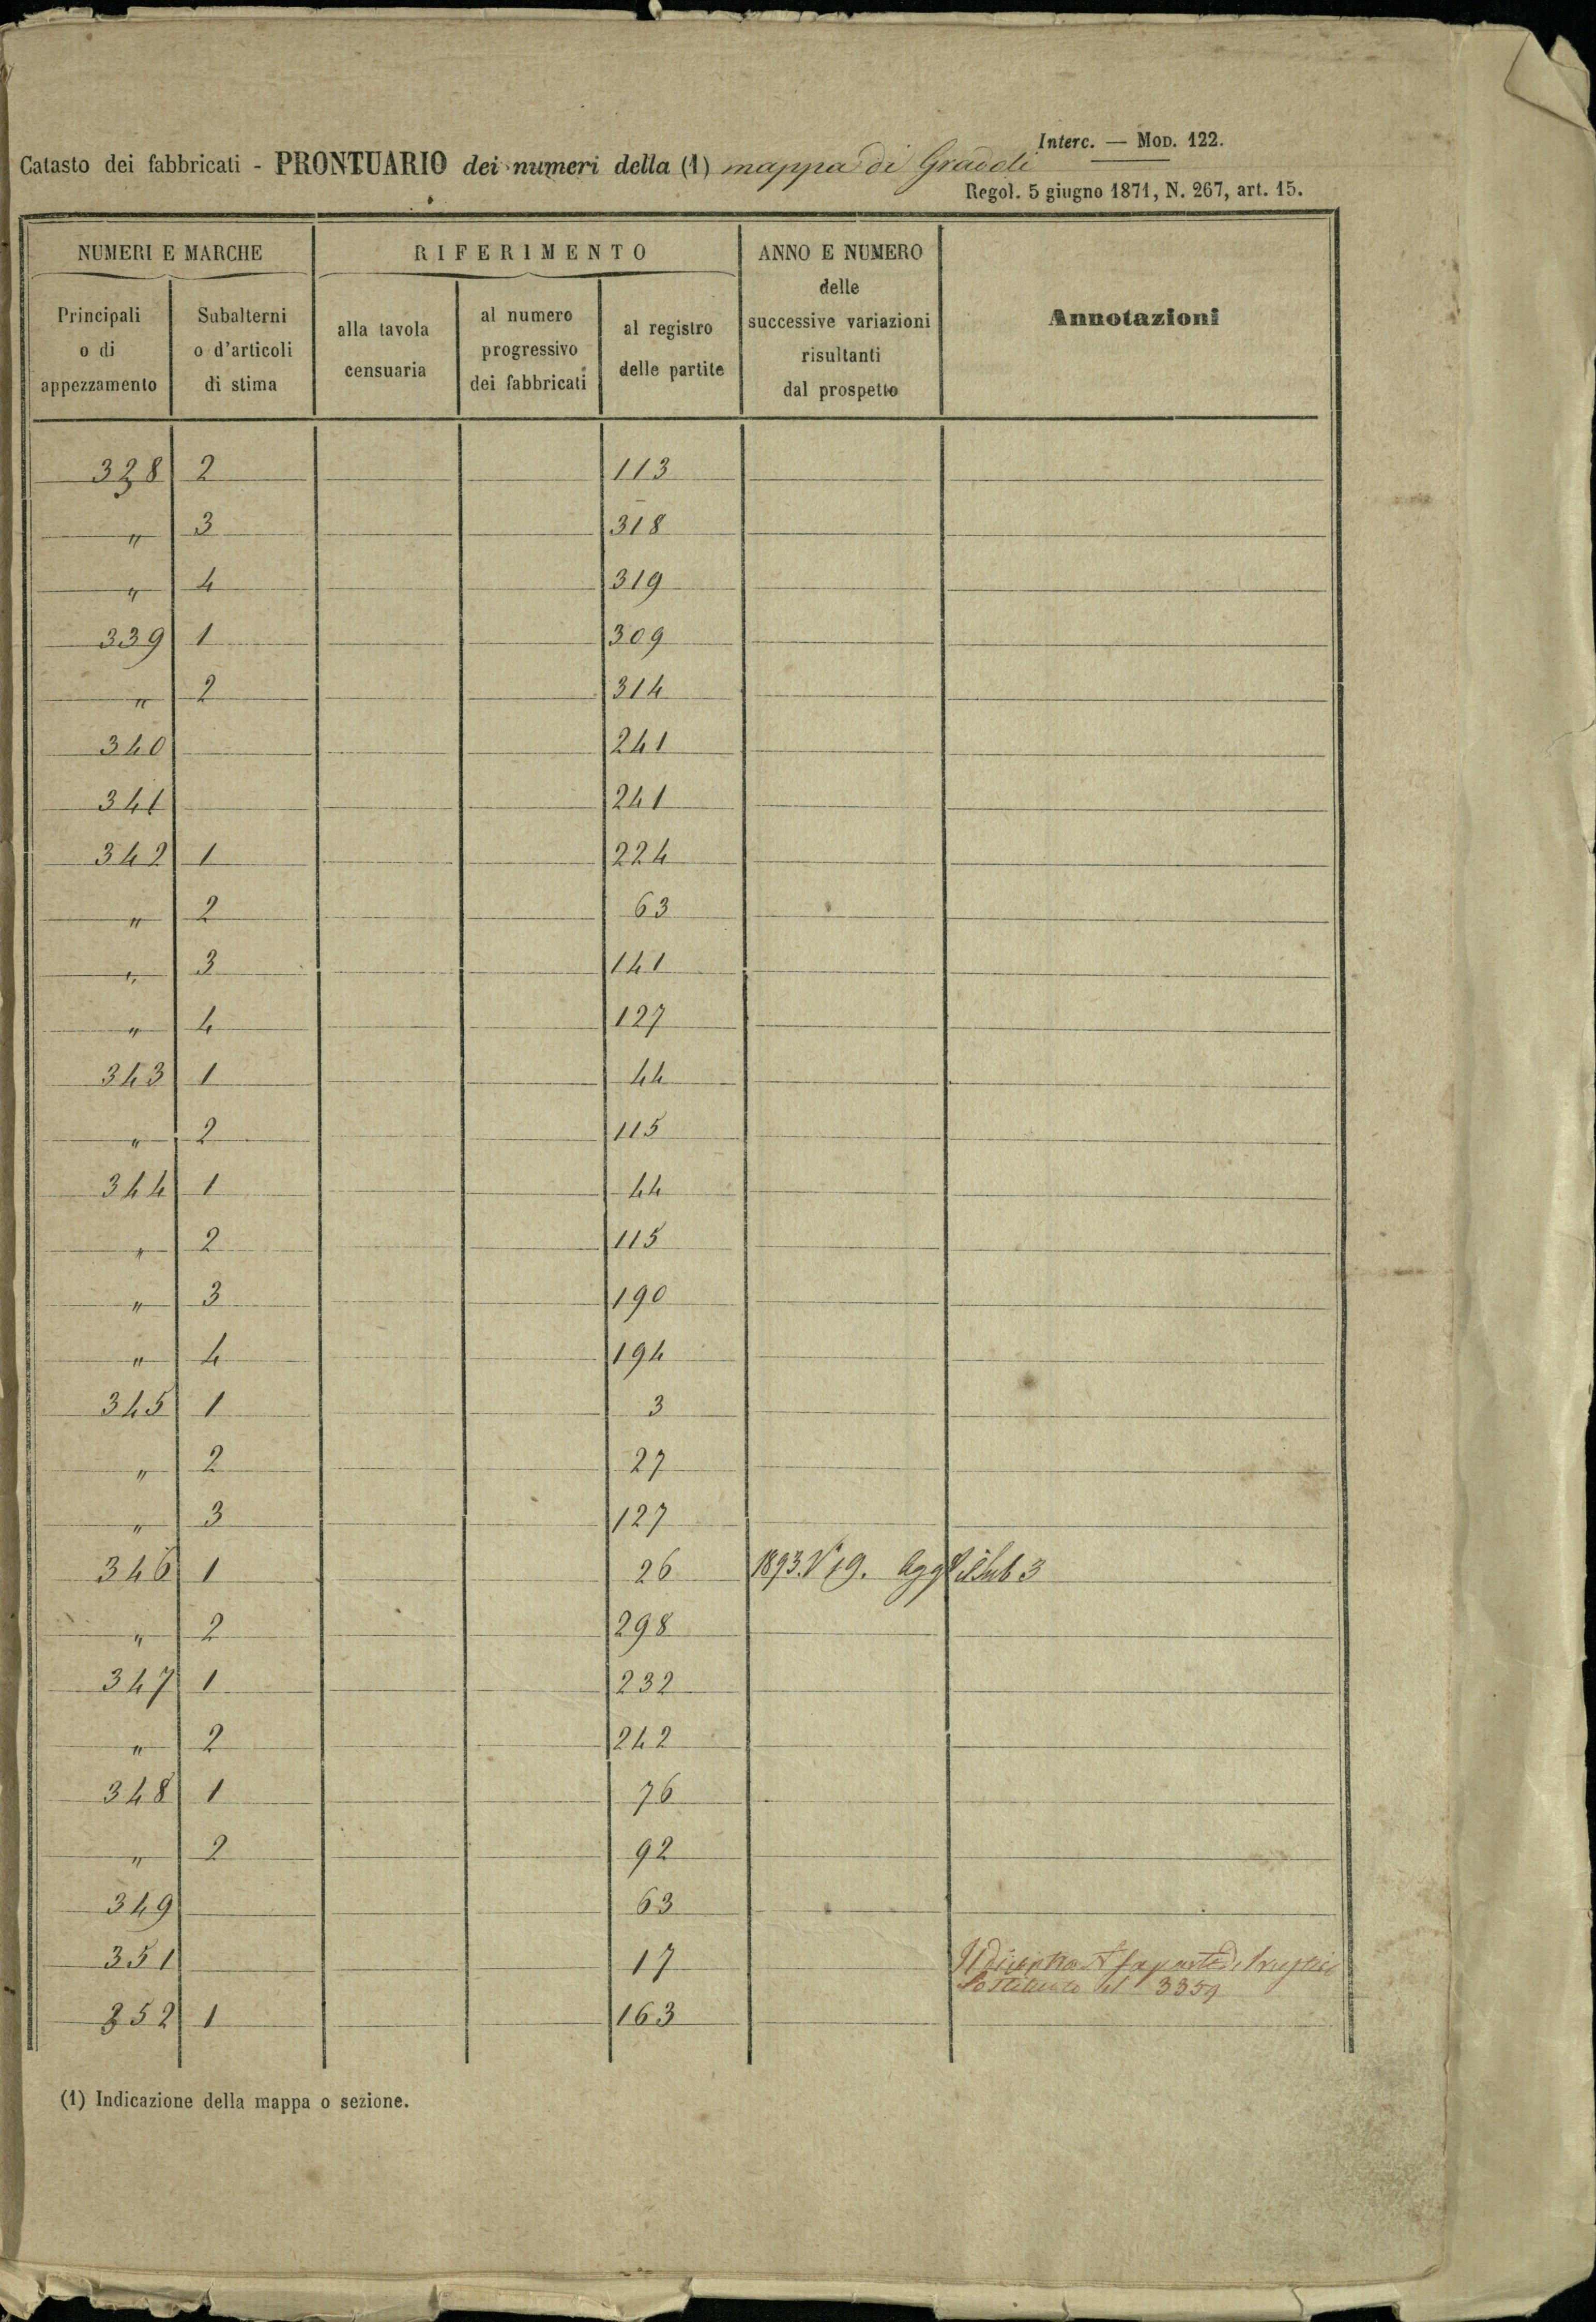 Interc. — Mod. 122.
Catasto dei fabbricati - PRONTUARIO dei numeri della (1) mappa di Gradoli
Regol. 5 giugno 1871, N. 267, art. 15.
NUMERI E MARCHE
RIFERIMENTO
ANNO E NUMERO
delle
successive variazioni
risultanti
dal prospetto
Annotazioni
Principali
o di
appezzamento
Subalterni
o d'articoli
di stima
alla tavola
censuaria
al numero
progressivo
dei fabbricati
al registro
delle partite
328 2 113
" 3 318
" 4 319
339 1 309
" 2 314
340 241
341 241
342 1 224
" 2 63
" 3 141
" 4 127
343 1 44
" 2 115
344 1 44
" 2 115
" 3 190
" 4 194
345 1 3
" 2 27
" 3 127
346 1 26 1893. N° 19. Agg il Sub 3
" 2 298
347 1 232
" 2 242
348 1 76
" 2 92
349 63
351 17
3359
352 1 163
(1) Indicazione della mappa o sezione.